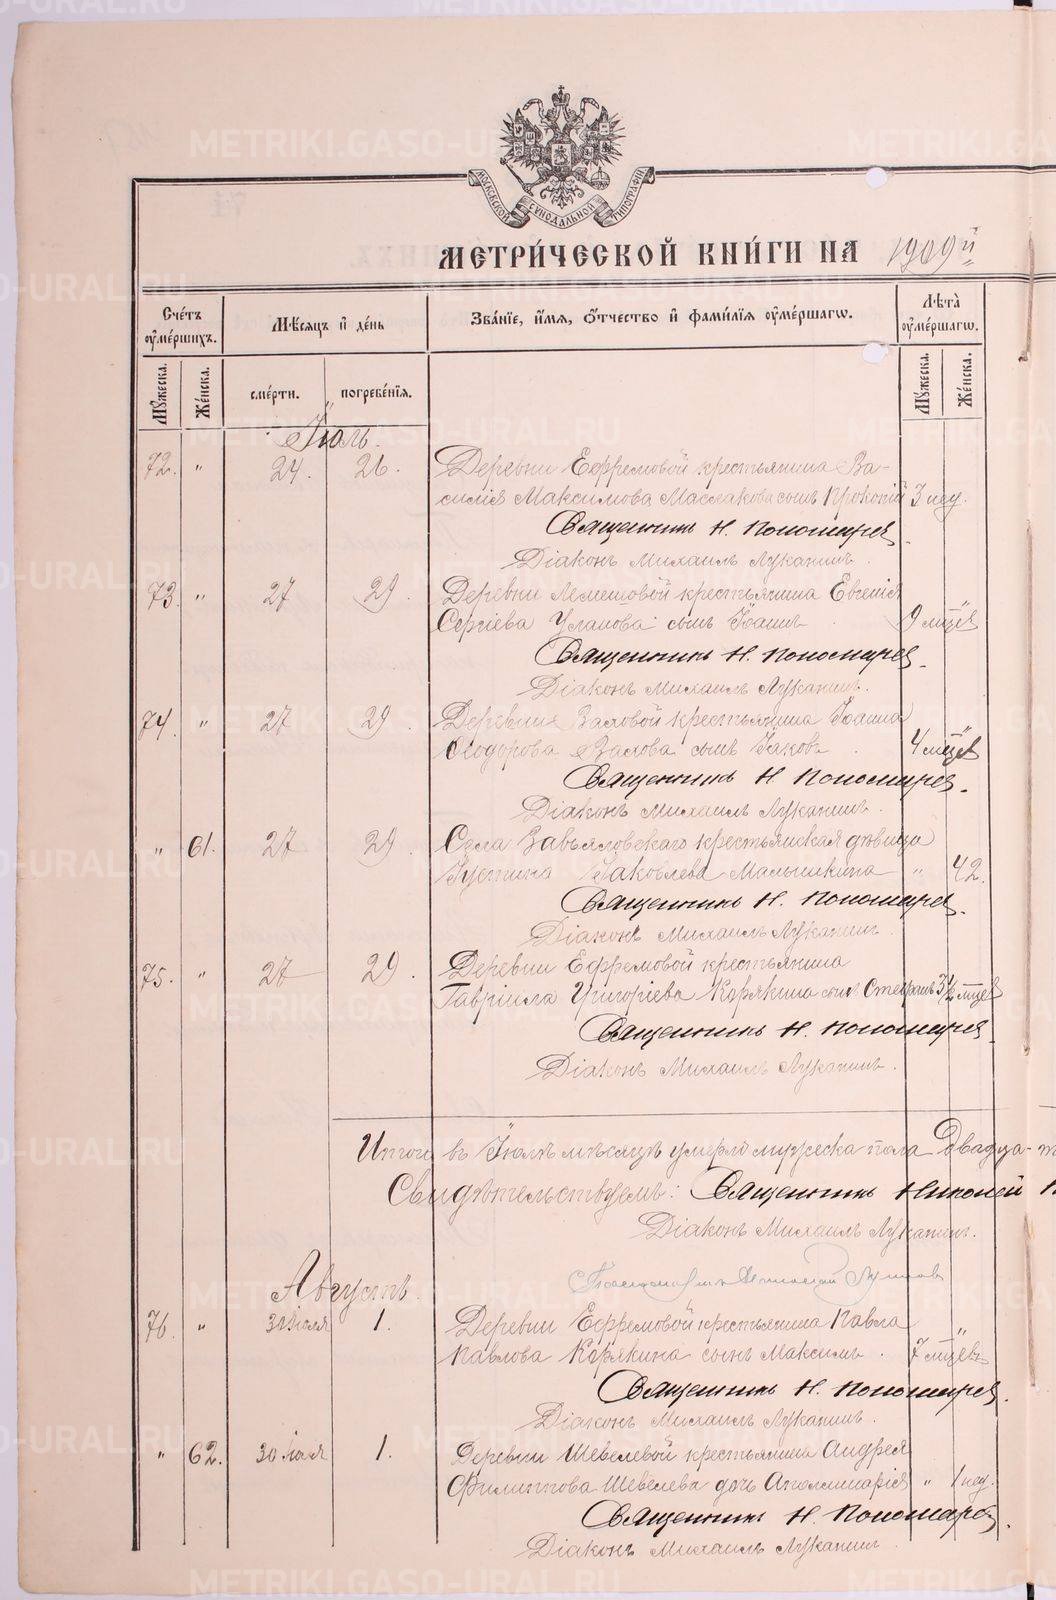 МОСКОВСКОЙ СѴНОДАЛЬНОЙ ТИПОГРАФІИ
МЕТРИ́ЧЕСКОЙ КНИ́ГИ НА 1909й
Сче́тъ ᲂу҆ме́ршихъ.
Мѣ́сяцъ и҆ де́нь
Зва́нїе, и҆́мѧ, ѻ҆́тчество и҆ фами́лїѧ ᲂу҆ме́ршагѡ.
Лѣта̀ ᲂу҆ме́ршагѡ.
Мꙋ́жеска.
Же́нска.
сме́рти.
погребе́нїѧ.
Мꙋ́жеска.
Же́нска.
Іюль.
72. " 24. 26. Деревни Ефремовой крестьянина Ва-
силія Максимова Маслакова сынъ Прокопій 3 нед.
Священникъ Н. Пономаревъ.
Діаконъ Михаилъ Луканинъ.
73. " 27 29. Деревни Лемешовой крестьянина Евгенія
Сергіева Уланова сынъ Іоаннъ. 9 мцевъ
Священникъ Н. Пономаревъ.
Діаконъ Михаилъ Луканинъ.
74. " 27 29. Деревни крестьянина Іоанна
Ѳеодорова сынъ Іаковъ. 4 мцевъ
Священникъ Н. Пономаревъ.
Діаконъ Михаилъ Луканинъ.
" 61. 27 29. Села Завьяловскаго крестьянская дѣвица
Іустина Іаковлева Малышкина " 42.
Священникъ Н. Пономаревъ.
Діаконъ Михаилъ Луканинъ.
75. " 27 29. Деревни Ефремовой крестьянина
Гавріила Григоріева Корякина сынъ Стефанъ 3½ мцев
Священникъ Н. Пономаревъ.
Діаконъ Михаилъ Луканинъ.
Итого въ Іюлѣ мѣсяцѣ умерло мужеска пола двадца-
Свидѣтельствуемъ: Священникъ Николай
Діаконъ Михаилъ Луканинъ.
Августъ.
76. " 31 Іюля 1. Деревни Ефремовой крестьянина Павла
Павлова Корякина сынъ Максимъ. 7 мцевъ
Священникъ Н. Пономаревъ.
Діаконъ Михаилъ Луканинъ.
" 62. 30 Іюля 1. Деревни Шевелевой крестьянина Андрея
Филиппова Шевелева дочь Аполлинарія " 1 нед.
Священникъ Н. Пономаревъ.
Діаконъ Михаилъ Луканинъ.
METRIKI.GASO-URAL.RU